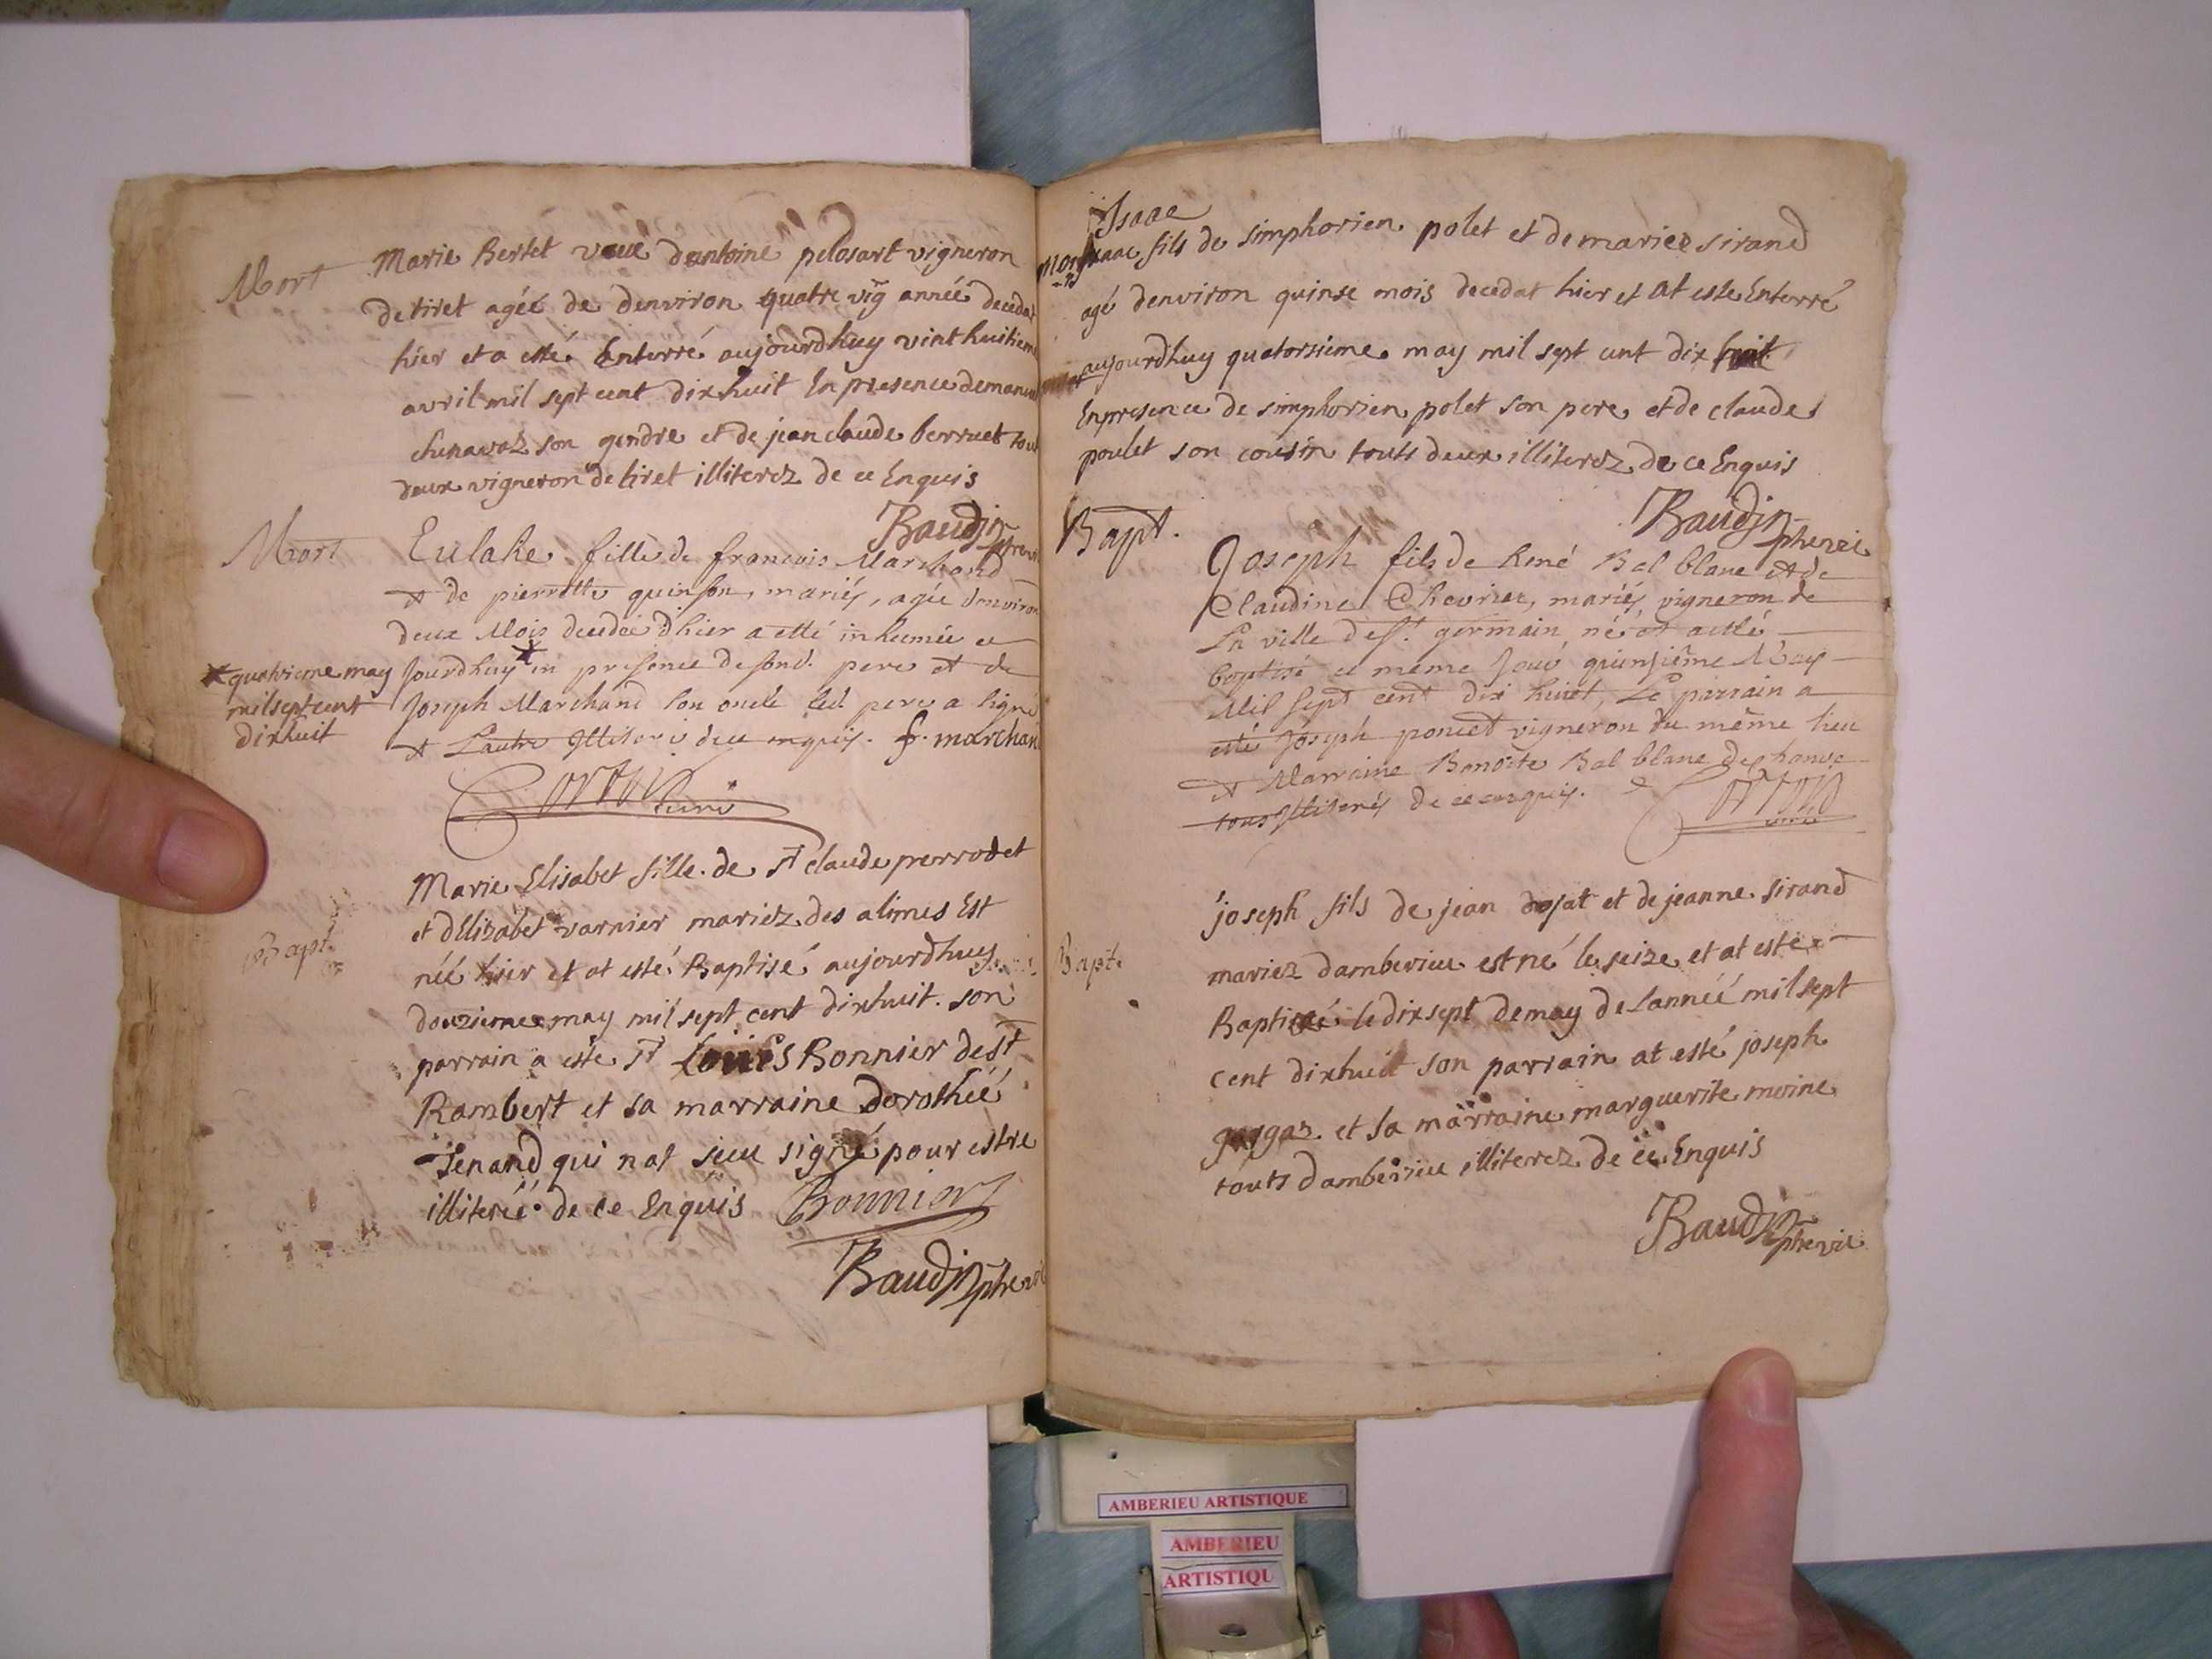 Mort
Marie Bertet veue dantoine pelosart vigneron
de tiret agée de denviron quatre vig année decedat
hier et a esté Enterré aujourdhuy vint huitiem
avril mil sept cent dixhuit En presence de
son gendre et de jean claude berruet tout
deux vigneron de tiret illiterez de ce Enquis
Baudin
Mort
Eulalie fille de francois Marchand
et de pierrette quinson, mariés, agée denviron
deux Mois decedée d'hier a etté inhumée ce
jourdhuy * in presence de son d. pere et de
* quatrieme may
mil sept cent
dixhuit
Joseph Marchand son oncle led pere a signé
et Lautre Illiteré de ce enquis. f. marchan
curé
Bapt.
Marie Elisabet fille de Sr claude perrodet
et dElizabet varnier mariez des alimes Est
née hier et at esté Baptisé aujourdhuy
douzieme may mil sept cent dixhuit. son
parrain a este Sr Louis Bonnier de St
Rambert et sa marraine dorothéé
Jenand qui nat sceu signé pour estre
illiteréé de ce Enquis Bonnier
Baudin
Isaac
Isaac fils de simphorien polet et de mariee sirand
agé denviron quinse mois decedat hier et at este Enterré
aujourdhuy quatorsieme may mil sept cent dix huit
En presence de simphorien polet son pere et de claude
poulet son cousin touts deux illiterez de ce Enquis
Baudin
Bapt.
Joseph fils de René Bal blanc et de
Claudine Chevrier, mariés, vigneron de
La ville de St. germain né et a etté
baptisé ce meme Jour quinsième May
Mil Sept cent dix huict, Le parrain a
etté Joseph poncet vigneron du même lieu
et Marraine Benoite Bal blanc
tous Illiterés de ce enquis.
Bapt.
joseph fils de jean dojat et de jeanne sirand
mariez damberieu est né le seize et at este
Baptisé le dixsept de may de Lannéé mil sept
cent dixhuit son parrain at esté joseph
et sa marraine marguerite moine
touts damberieu illiterez de ce Enquis
Baudin
AMBERIEU ARTISTIQUE
AMBERIEU
ARTISTIQU